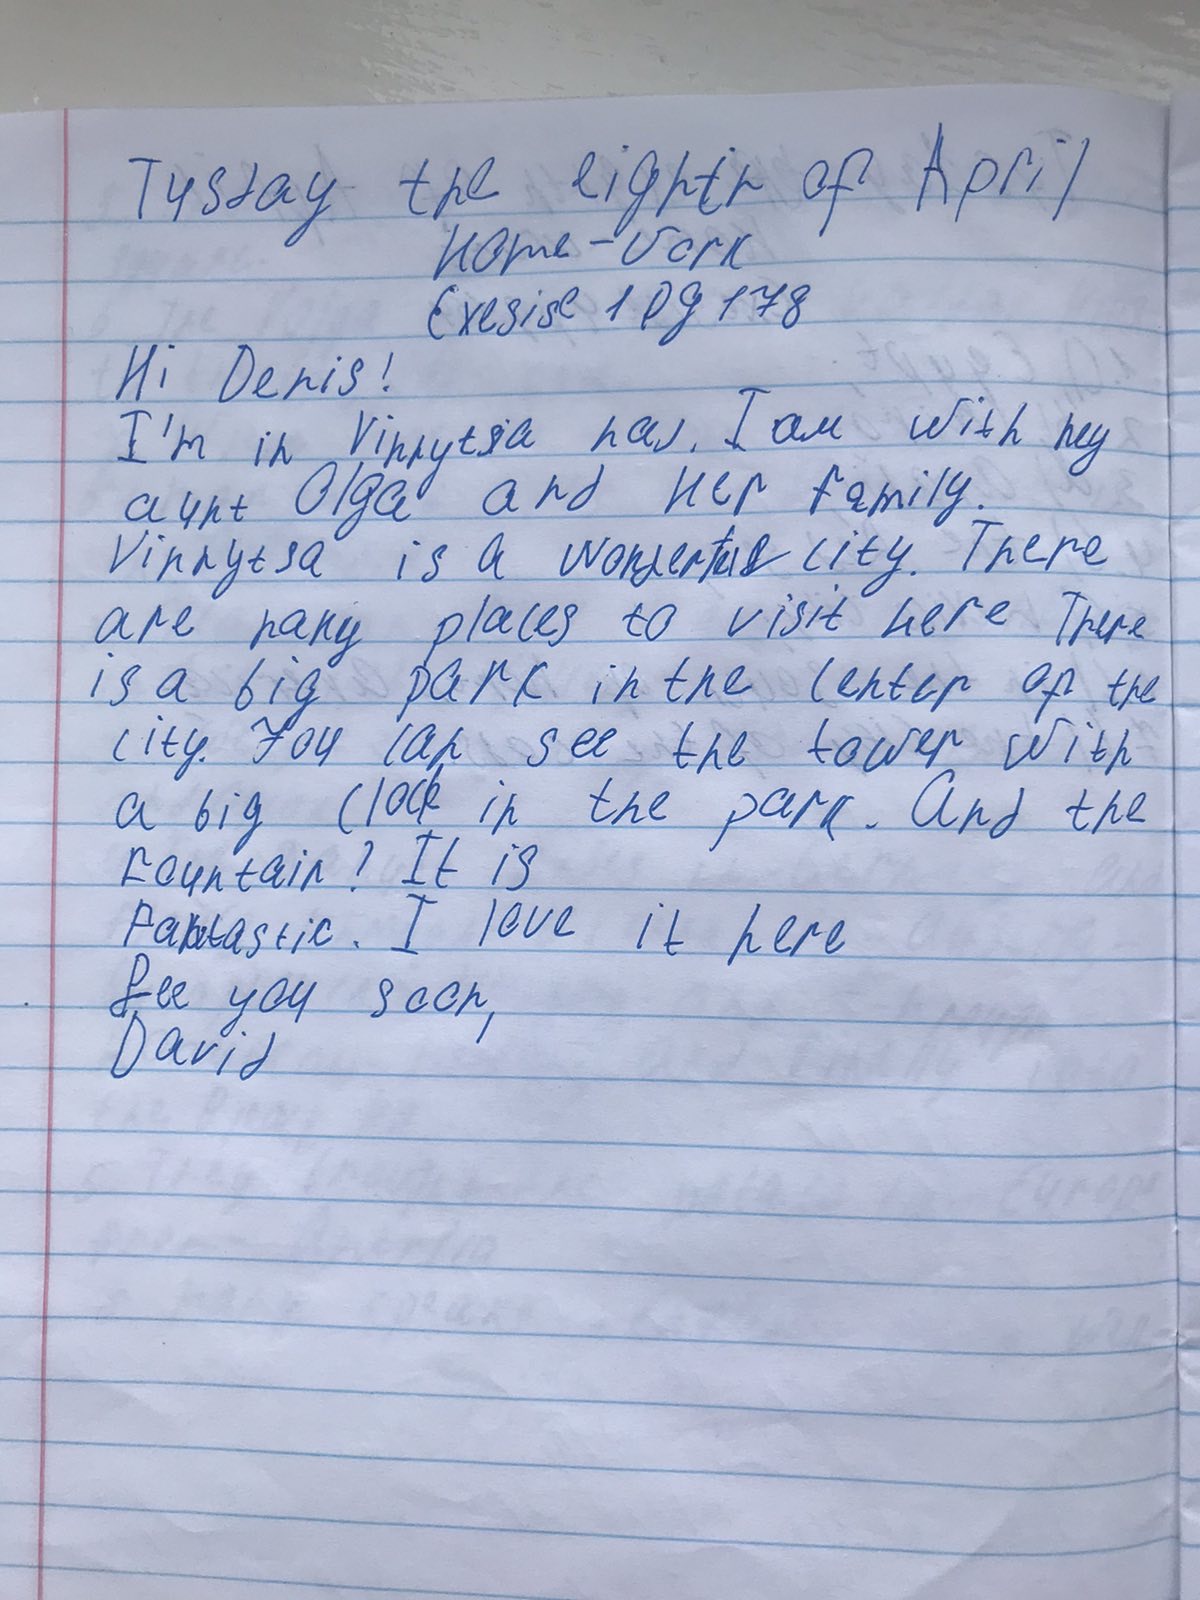 Tusday the eighth of April
Home-Work
Exesise 1 pg 178
Hi Denis!
I'm in Vinnytsia now. I am with my
aunt Olga and her family.
Vinnytsa is a wonderful city. There
are many places to visit here There
is a big park in the center of the
city. You can see the tower with
a big clock in the park. And the
fountain? It is
Fantastic. I love it here
See you soon,
David